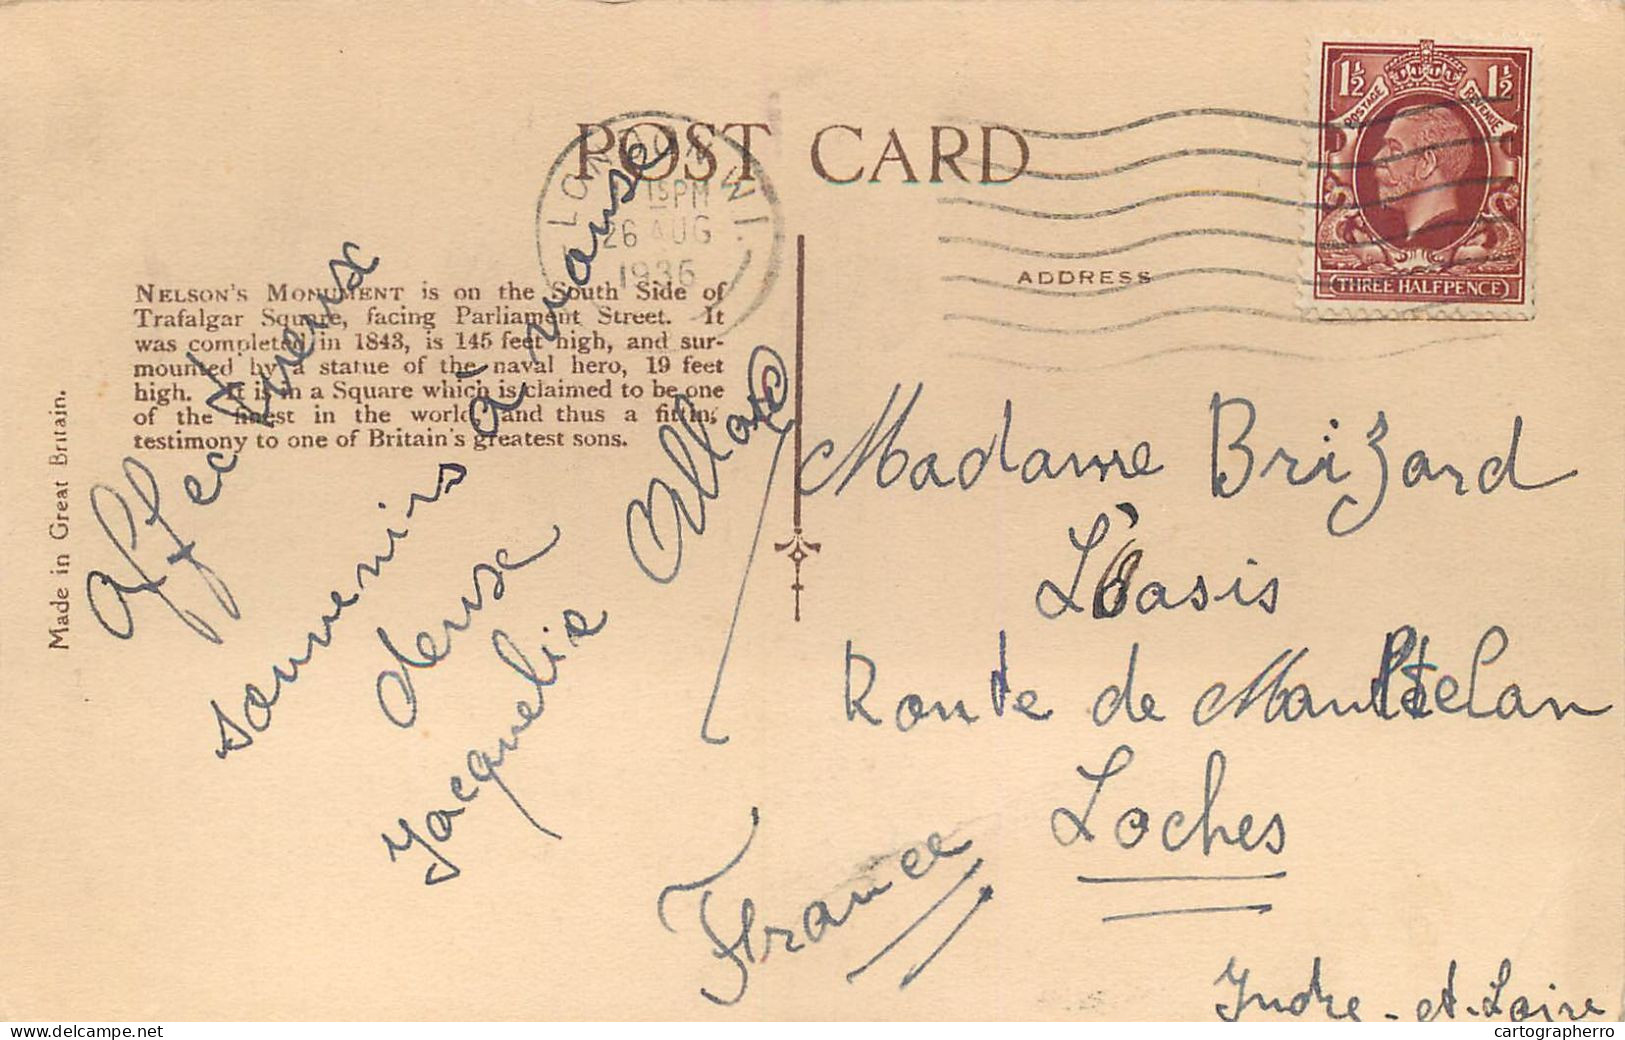 POST CARD
LONDON W.1.
15 PM
26 AUG
1936
1½ 1½
POSTAGE REVENUE
THREE HALFPENCE
ADDRESS
NELSON'S MONUMENT is on the South Side of
Trafalgar Square, facing Parliament Street. It
was completed in 1843, is 145 feet high, and sur-
mounted by a statue of the naval hero, 19 feet
high. It is in a Square which is claimed to be one
of the finest in the world, and thus a fitting
testimony to one of Britain's greatest sons.
Made in Great Britain.
Affectueux
souvenirs à
Jacqueline
Madame Brizard
L'Oasis
Route de Mantelan
Loches
France
Indre-et-Loire
cartographerro